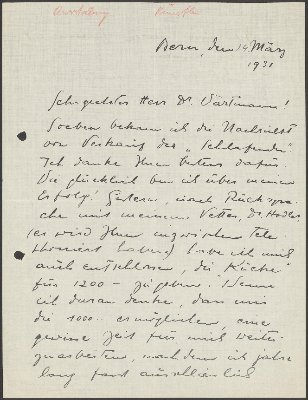 Bern, den 14 März
1931
Sehr geehrter Herr Dr. Wartmann!
Soeben bekam ich die Nachricht
vom Verkauf der „Schlafenden"
Ich danke Ihnen bestens dafür
Wie glücklich bin ich über meinen
Erfolg! Gestern, nach Rückspra-
che mit meinem Vetter, Dr. Hodler
(er wird Ihnen inzwischen tele-
phoniert haben) habe ich mich
auch entschlossen, die Küche
für 1200 – zu geben. Wenn
ich daran denke, dass mir
die 1000. ermöglichen, eine
gewisse Zeit für mich weiter-
zuarbeiten, nachdem ich jahre
lang fast ausschliesslich